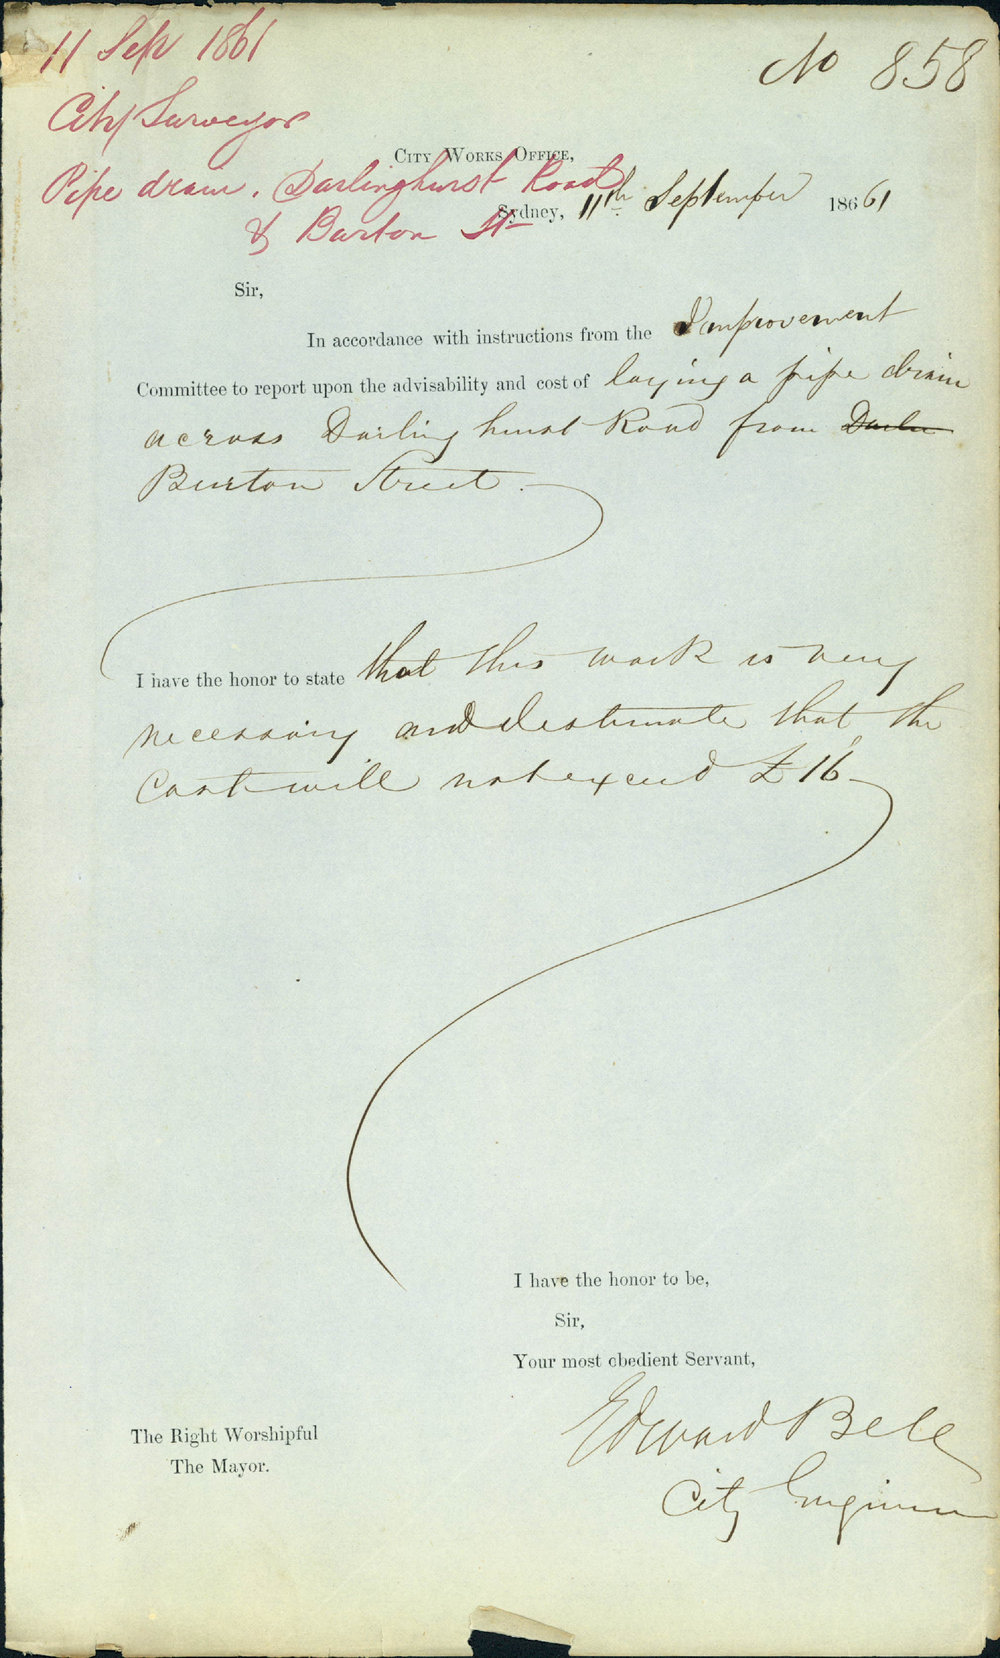 11 Sep 1861
No 858
City Surveyor
City Works Office,
Pipe drain. Darlinghurst Road
Sydney, 11th September 18661
& Burton St
Sir,
In accordance with instructions from the Improvement
Committee to report upon the advisability and cost of laying a pipe drain
across Darlinghurst Road from Darlin
Burton Street.
I have the honor to state that this work is very
necessary and I estimate that the
Cost will not exceed £16
I have the honor to be,
Sir,
Your most obedient Servant,
Edward Bell
City Engineer
The Right Worshipful
The Mayor.